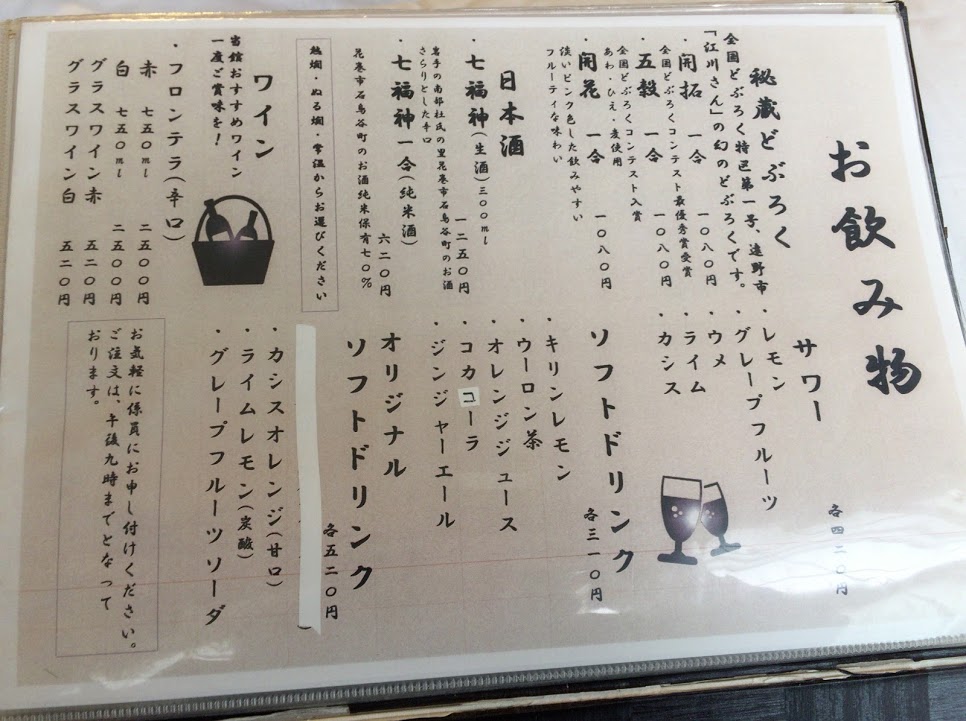 お飲み物
秘蔵どぶろく
全国どぶろく特区第一号、遠野市
「江川さん」の幻のどぶろくです。
・開拓 一合 一〇八〇円
全国どぶろくコンテスト最優秀賞受賞
・五穀 一合 一〇八〇円
全国どぶろくコンテスト入賞
あわ・ひえ・麦使用
・開花 一合 一〇八〇円
淡いピンク色した飲みやすい
フルーティな味わい
日本酒
・七福神(生酒)三〇〇ml 一二五〇円
岩手の南部杜氏の里花巻市石鳥谷町のお酒
さらりとした辛口
・七福神 一合(純米酒) 六二〇円
花巻市石鳥谷町のお酒純米保有七〇%
熱燗・ぬる燗・常温からお選びください
ワイン
当館おすすめワイン
一度ご賞味を!
・フロンテラ(辛口)
赤 七五〇ml 二五〇〇円
白 七五〇ml 二五〇〇円
グラスワイン赤 五二〇円
グラスワイン白 五二〇円
サワー 各四二〇円
・レモン
・グレープフルーツ
・ウメ
・ライム
・カシス
ソフトドリンク 各三一〇円
・キリンレモン
・ウーロン茶
・オレンジジュース
・コカコーラ
・ジンジャーエール
オリジナル
ソフトドリンク 各五二〇円
・カシスオレンジ(甘口)
・ライムレモン(炭酸)
・グレープフルーツソーダ
お気軽に係員にお申し付けください。
ご注文は、午後九時までとなって
おります。